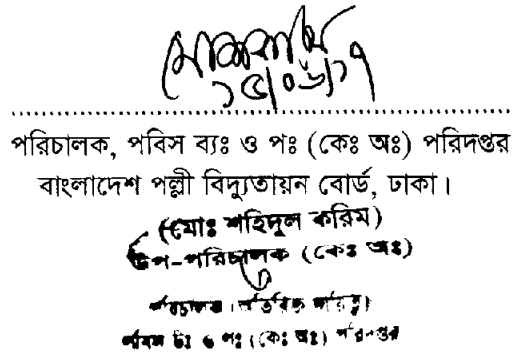 ১৫/০৬/১৭
পরিচালক, পবিস ব্যঃ ও পঃ (কেঃ অঃ) পরিদপ্তর
বাংলাদেশ পল্লী বিদ্যুতায়ন বোর্ড, ঢাকা।
(মোঃ শহিদুল করিম)
উপ-পরিচালক (কেঃ অঃ)
পরিচালক (অতিরিক্ত দায়িত্ব)
পবিস ব্যঃ ও পঃ (কেঃ অঃ) পরিদপ্তর